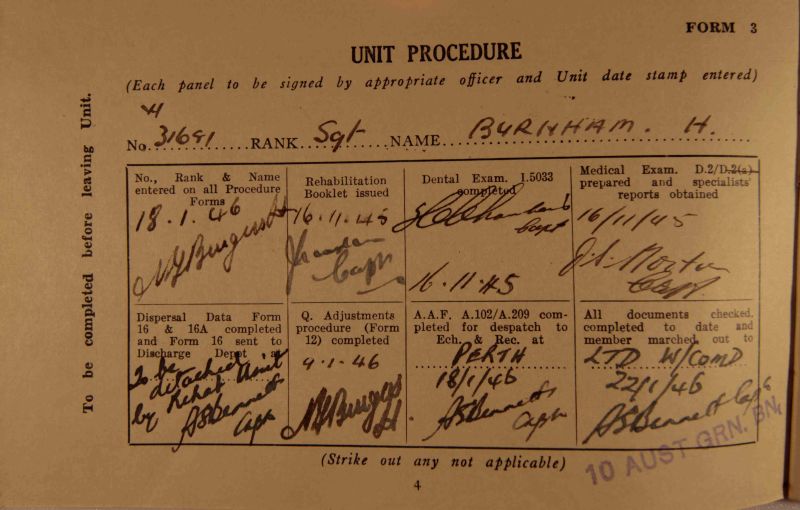 FORM 3
UNIT PROCEDURE
(Each panel to be signed by appropriate officer and Unit date stamp entered)
To be completed before leaving Unit.
No. 31691 RANK Sgt NAME BURNHAM. H.
No., Rank & Name
entered on all Procedure
Forms
18.1.46
Rehabilitation
Booklet issued
16.11.45
Capt
Dental Exam. I.5033
completed
Capt
16.11.45
Medical Exam. D.2/D.2(a)
prepared and specialists'
reports obtained
16/11/45
Capt.
Dispersal Data Form
16 & 16A completed
and Form 16 sent to
Discharge Depot at
To be
detached
by Rehab Unit
ASBennett
Capt
Q. Adjustments
procedure (Form
12) completed
9.1.46
Lt
A.A.F. A.102/A.209 com-
pleted for despatch to
Ech. & Rec. at
PERTH
18/1/46
ASBennett
Capt
All documents checked,
completed to date and
member marched out to
LTD W/COMD
22/1/46
ASBennett Capt
10 AUST GRN. BN.
(Strike out any not applicable)
4